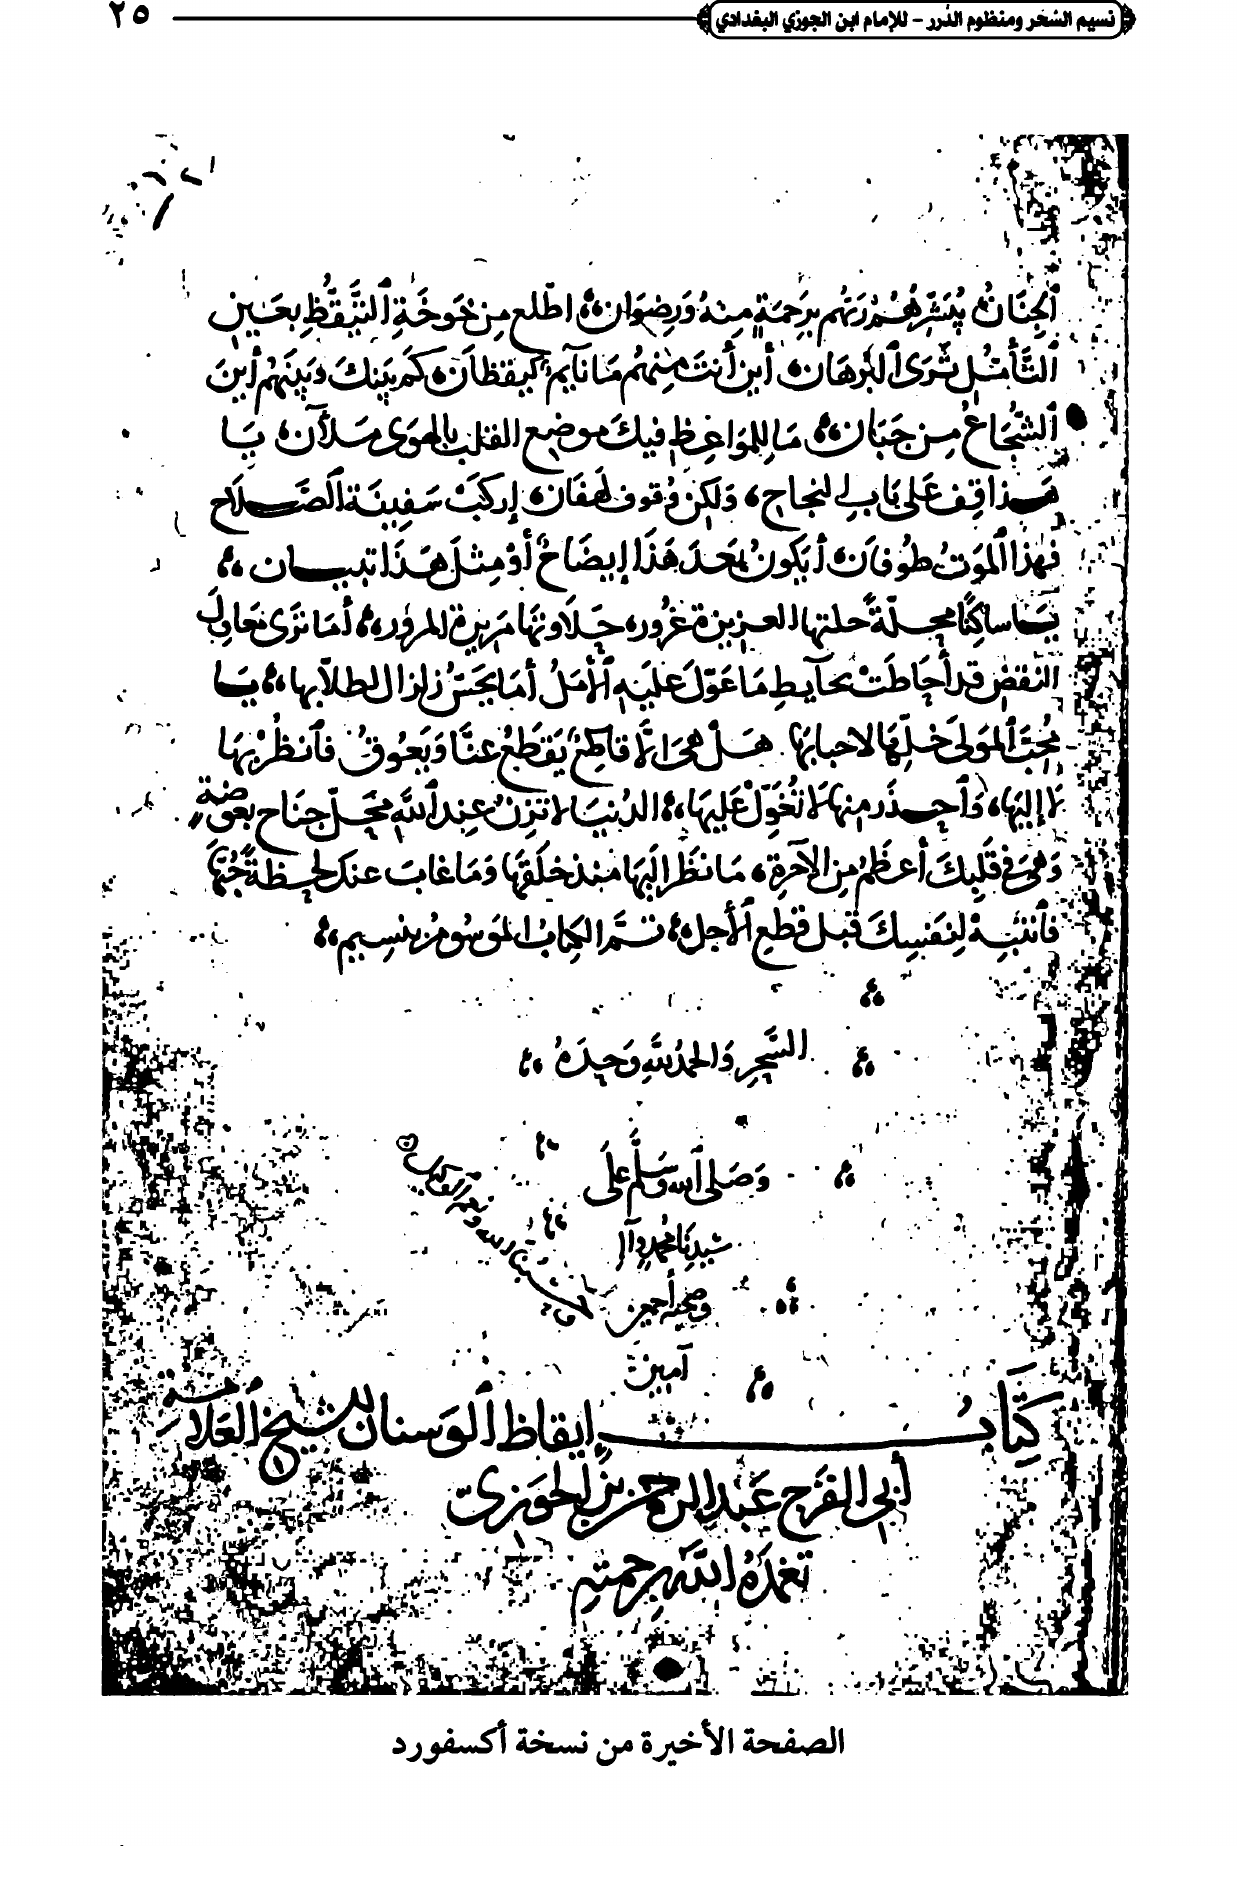 نسيم السَّحَر ومنظوم الدُّرر - للإمام ابن الجوزي البغدادي
٢٥
ٱلجِنَانُ يُبَشِّرُهُمْ رَبُّهُم بِرَحْمَةٍ مِنهُ وَرِضوَانٌ اطّلع مِن خَوخَةِ ٱلتَّيَقُّظِ بعَين
ٱلتَّأَمُّلِ تَرَى ٱلبُرهَان أين أنتَ مِنهُم مَا نَآيِمٌ كيقظَان كم بَينَكَ وَبَينَهُم أينَ
ٱلشُّجَاعُ مِن جَبَان مَا لِلمَوَاعِظِ فِيكَ موضِع القلب بالهوى مَلآن يَا
هَذا قِف عَلى بَابِ النجاح وَلَكِن وُقوف لهفَان إركبْ سَفِينَة ٱلصَّلَاح
فهٰذا ٱلموَتُ طُوفَان أيَكونُ بَعدَ هَذَا إيضَاحٌ أوْ مِثلَ هَذا تبيَان
يَا سَاكِنًا محِلّةً حلتها العزيزة غرُور حَلاوتها مَرِيرة المرُور أمَا تَرَى مَعَاوِلَ
النقضِ قد أحَاطَتْ بحَآيطِ مَا عَوّلَ عَليَهِ ٱلأمَلُ أمَا يحَسّ زلزال لطلّابها يَا
مُحِبَّ ٱلموَلى خَلِّهَا لاحبابهَا هَل هيَ إلَّا قاطِعٌ يَقطَعُ عنَّا وَيَعُوقُ فٱنظرْ بهَا
لَا إليهَا وٱحذَر مِنهَا لَا تُعَوِّلْ عَليهَا الدُنيَا لا تزِنُ عِند ٱللَّهِ محَلَّ جنَاح بعَوضَةٍ
وَهيَ في قَلبِكَ أعظَمُ مِن الآخِرَة مَا نظَر إليَهَا منذ خلقَهَا وَمَا غابَ عنك لحظَةً حُبُّهَا
فٱنتَبِهْ لِنَفسِكَ قبلَ قطعِ ٱلأجل تمَّ الكِتابُ الموَسُومُ بنسِيم
السَّحَرِ وَالحَمدُ للَّهِ وَحدَهُ
وَصَلى ٱللَّهُ وَسَلَّم عَلَى
سَيِّدِنَا مُحمدٍ وَآلِه
وصحبِه أجمعين
آمِين
حسبُنا الله ونعم الوكيل
كِتَابُ إيقاظِ ٱلوَسنان للشيخ ٱلعَلامَة
أبي الفَرَج عَبدِ الرحمنِ بنِ الجَوزي
تغمدَهُ اللَّهُ برحمتِهِ
الصفحة الأخيرة من نسخة أكسفورد